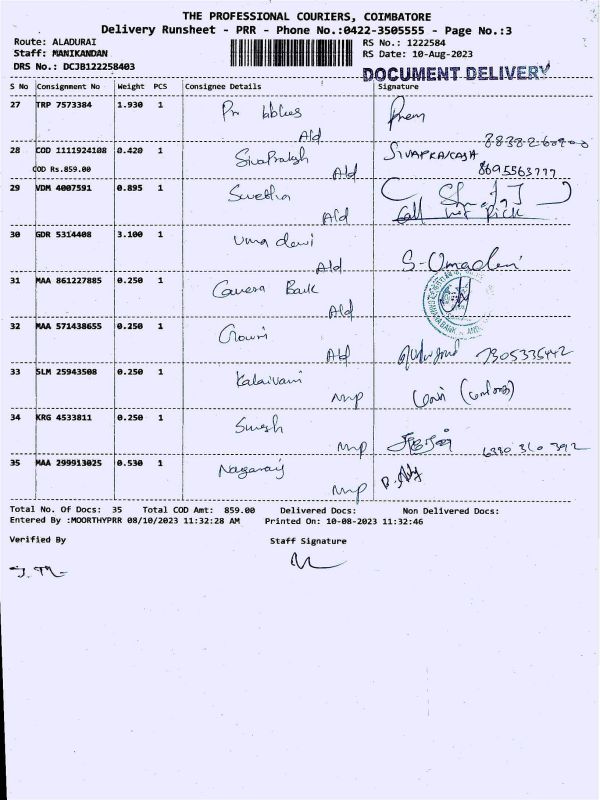 THE PROFESSIONAL COURIERS, COIMBATORE
Delivery Runsheet - PRR - Phone No.:0422-3505555 - Page No.:3
Route: ALADURAI
RS No.: 1222584
Staff: MANIKANDAN
RS Date: 10-Aug-2023
DRS No.: DCJB122258403
DOCUMENT DELIVERY
S No Consignment No Weight PCS Consignee Details Signature
27 TRP 7573384 1.930 1 Prem
Ald
28 COD 1111924108 0.420 1 SivaPrakash SIVAPRAKASH
COD Rs.859.00 Ald 8695563777
29 VDM 4007591 0.895 1 Swetha
Ald Call not Pick
30 GDR 5314408 3.100 1 Uma devi
Ald S-Umadevi
31 MAA 861227885 0.250 1 Canera Bank
Ald
32 MAA 571438655 0.250 1 Gowri
Ald 7305335442
33 SLM 25943508 0.250 1 Kalaivani
MMP
34 KRG 4533811 0.250 1 Suresh
MMP 6380 310 392
35 MAA 299913025 0.530 1 Nagaraj
MMP
Total No. Of Docs: 35 Total COD Amt: 859.00 Delivered Docs: Non Delivered Docs:
Entered By :MOORTHYPRR 08/10/2023 11:32:28 AM Printed On: 10-08-2023 11:32:46
Verified By Staff Signature